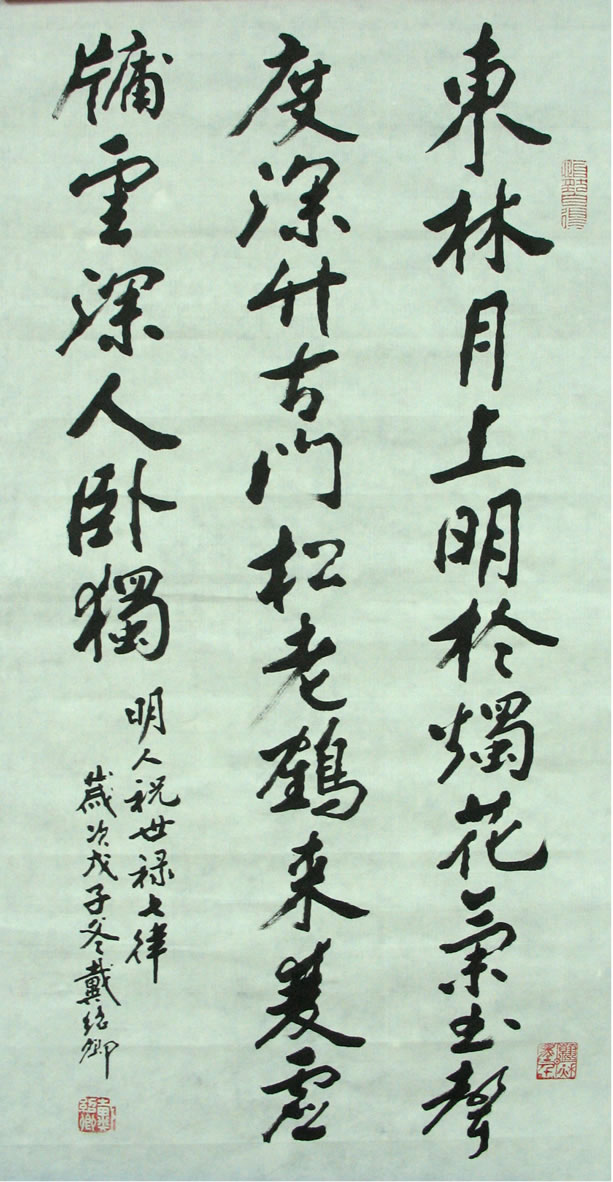 東林月上明於燭花氣書聲
度深竹古門松老鶴来雙虛
牖雲深人卧獨
明人祝世禄七律
歲次戊子冬戴紹卿